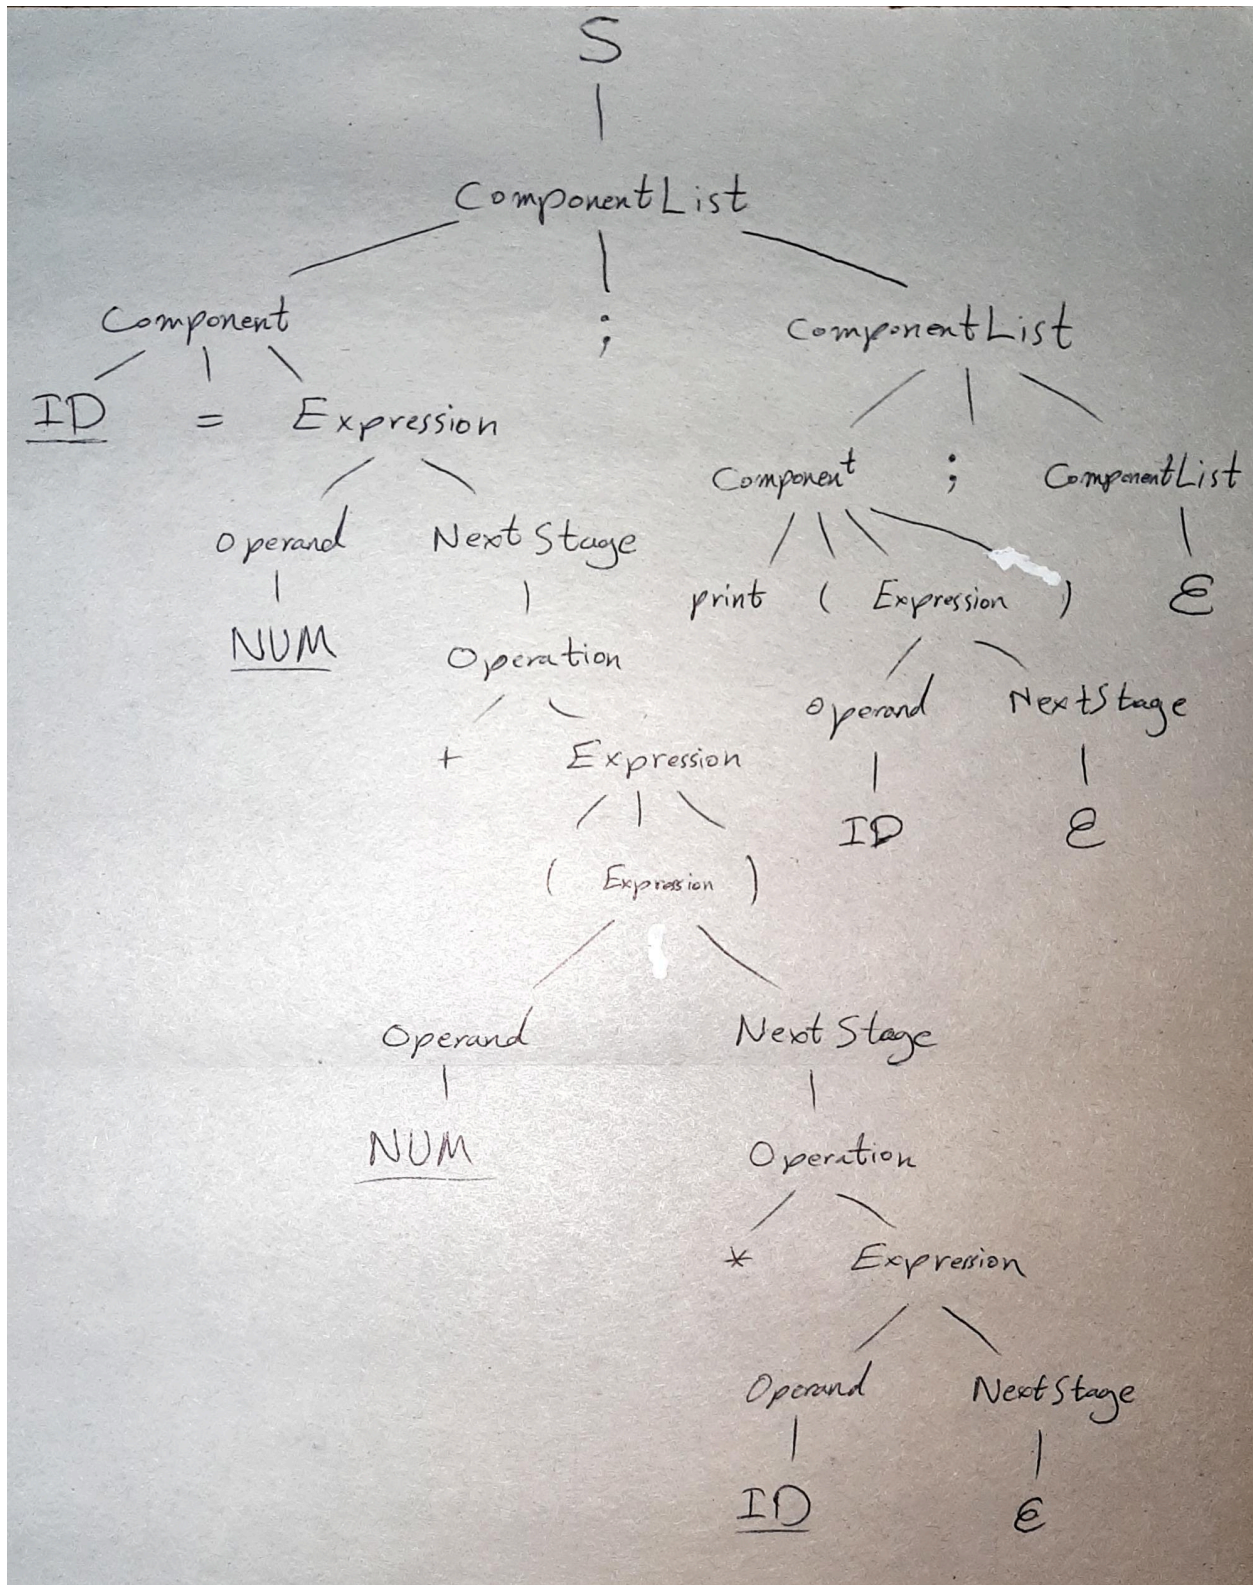 S
ComponentList
Component ; ComponentList
ID = Expression
Component ; ComponentList
Operand NextStage
print ( Expression ) ε
NUM Operation
Operand NextStage
+ Expression
ID ε
( Expression )
Operand NextStage
NUM Operation
* Expression
Operand NextStage
ID ε